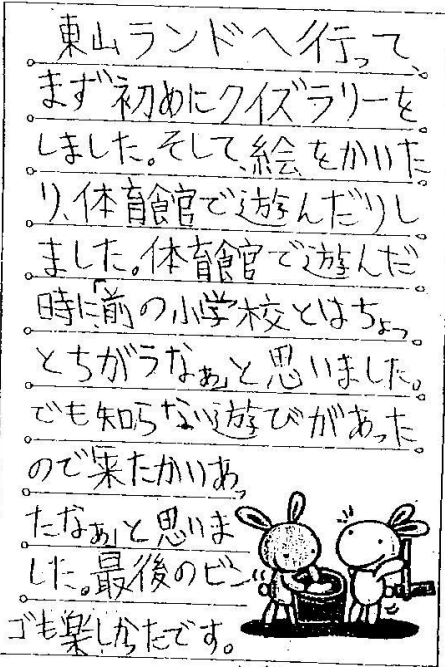 東山ランドへ行って、
まず初めにクイズラリーを
しました。そして、絵をかいた
り、体育館で遊んだりし
ました。体育館で遊んだ
時に「前の小学校とはちょっ
とちがうなぁ」と思いました。
でも知らない遊びがあった
ので「来たかいあっ
たなぁ」と思いま
した。最後のビン
ゴも楽しかったです。